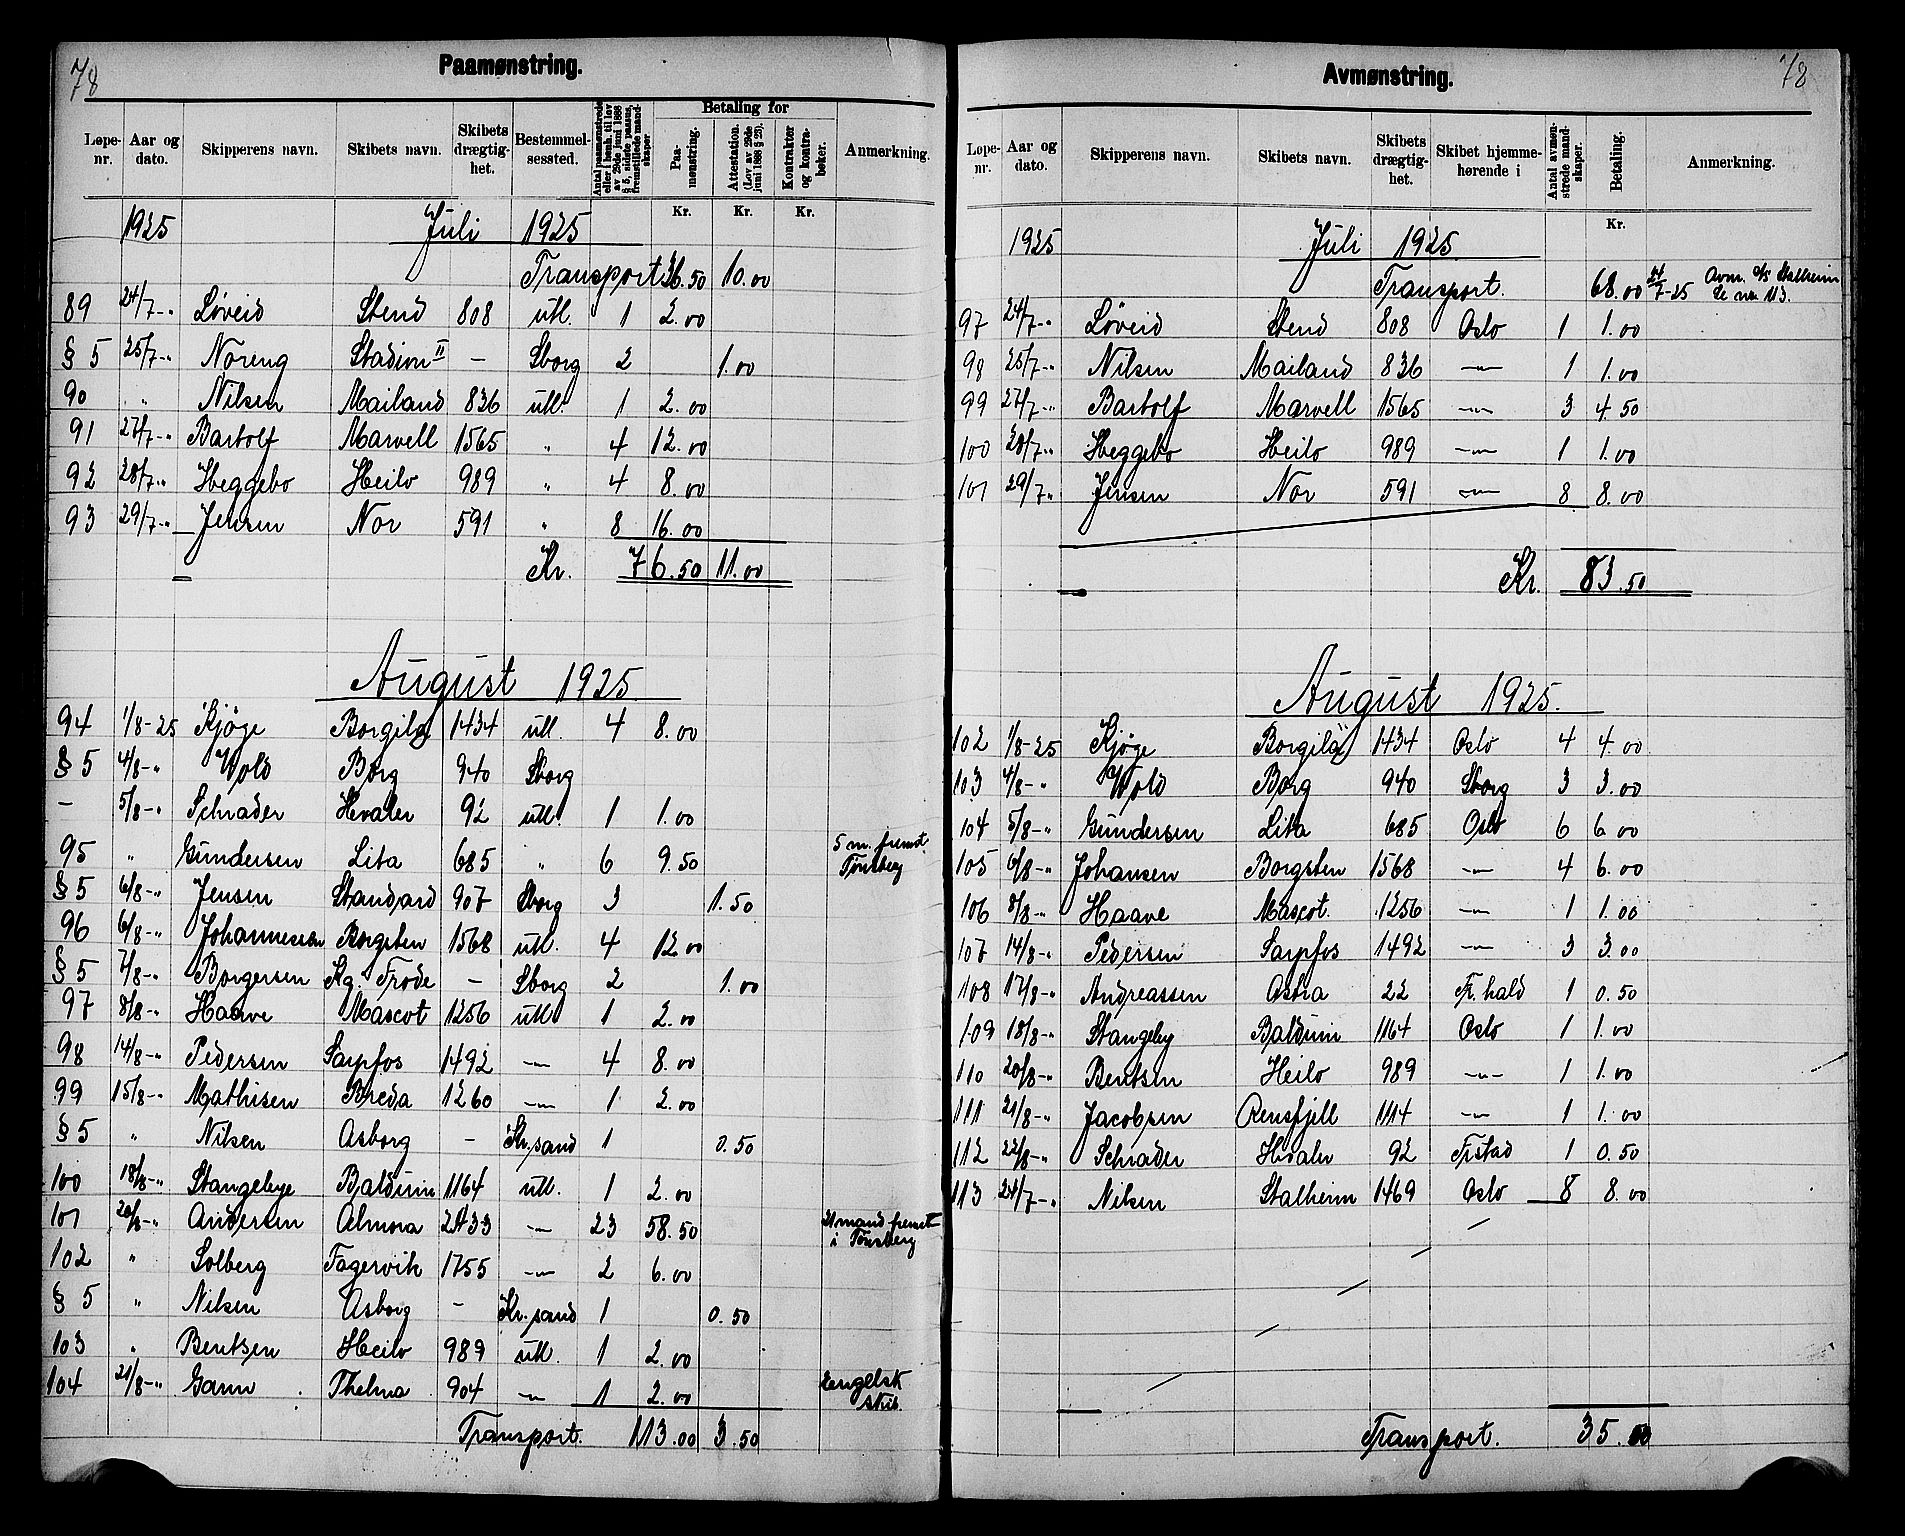 78
Paamønstring.
Løpe-nr. Aar og dato. Skipperens navn. Skibets navn. Skibets drægtig-het. Bestemmel-sessted. Antal paamønstrede eller i henh. til lov av 29de juni 1888 § 5, sidste passus, fremstillede mand-skaper Betaling for Paa-mønstring. Attestation. (Lov av 29de juni 1888 § 23). Kontrakter og kontra-bøker. Anmerkning.
Kr. Kr. Kr.
1925 Juli 1925
Transport 36.50 10.00
89 24/7-" Løveid Stend 808 utl. 1 2.00
§ 5 25/7-" Noreng Stadion II — Sborg 2 1.00
90 " Nilsen Mailand 836 utl. 1 2.00
91 27/7-" Bartolf Marvell 1565 " 4 12.00
92 28/7-" Heggebo Heilo 989 " 4 8.00
93 29/7-" Jensen Nor 591 " 8 16.00
Kr. 76.50 11.00
August 1925
94 1/8-25 Kjøge Borgila 1434 utl. 4 8.00
§ 5 4/8-" Wold Borg 940 Sborg
— 5/8-" Schrader Hvaler 92 utl. 1 1.00
95 " Gundersen Lita 685 " 6 9.50 5 m. fremst. Tønsberg
§ 5 6/8-" Jensen Standard 907 Sborg 3 1.50
96 6/8-" Johannessen Borgsten 1568 utl. 4 12.00
§ 5 7/8-" Borgersen Kg. Frode — Sborg 2 1.00
97 8/8-" Haave Mascot 1256 utl 1 2.00
98 14/8-" Pedersen Sarpfos 1492 —"— 4 8.00
99 15/8-" Mathisen Breda 1260 —"— 1 2.00
§ 5 " Nilsen Asborg — Kr.sand 1 0.50
100 18/8-" Stangebye Balduin 1164 utl. 1 2.00
101 20/8-" Andersen Almora 2433 —"— 23 58.50 21 mand fremst i Tønsberg
102 " Solberg Fagervik 1755 —"— 2 6.00
§ 5 " Nilsen Asborg — Kr.sand 1 0.50
103 " Bentsen Heilo 989 utl. 1 2.00
104 21/8-" Gann Thelma 904 —"— 1 2.00 engelsk skib.
Transport. 113.00 3.50
78
Avmønstring.
Løpe-nr. Aar og dato. Skipperens navn. Skibets navn. Skibets drægtig-het. Skibet hjemme-hørende i Antal avmøn-strede mand-skaper. Betaling. Anmerkning.
Kr.
1925 Juli 1925
Transport. 68.00 24/7-25 Avm. d/s Stalheim Se nr. 113.
97 24/7-" Løveid Stend 808 Oslo 1 1.00
98 25/7-" Nilsen Mailand 836 —"— 1 1.00
99 27/7-" Bartolf Marvell 1565 —"— 3 4.50
100 28/7-" Heggebo Heilo 989 —"— 1 1.00
101 29/7-" Jensen Nor 591 —"— 8 8.00
Kr. 83.50
August 1925.
102 1/8-25 Kjøge Borgila 1434 Oslo 4 4.00
103 4/8-" Wold Borg 940 Sborg 3 3.00
104 5/8-" Gundersen Lita 685 Oslo 6 6.00
105 6/8-" Johansen Borgsten 1568 —"— 4 6.00
106 8/8-" Haave Mascot. 1256 —"— 1 1.00
107 14/8-" Pedersen Sarpfos 1492 —"— 3 3.00
108 17/8-" Andreassen Astra 22 Fr.hald 1 0.50
109 18/8-" Stangeby Balduin 1164 Oslo 1 1.00
110 20/8-" Bentsen Heilo 989 —"— 1 1.00
111 21/8-" Jacobsen Rensfjell 1114 —"— 1 1.00
112 22/8-" Schrader Hvaler 92 Frstad 1 0.50
113 24/7-" Nilsen Stalheim 1469 Oslo 8 8.00
Transport. 35.00